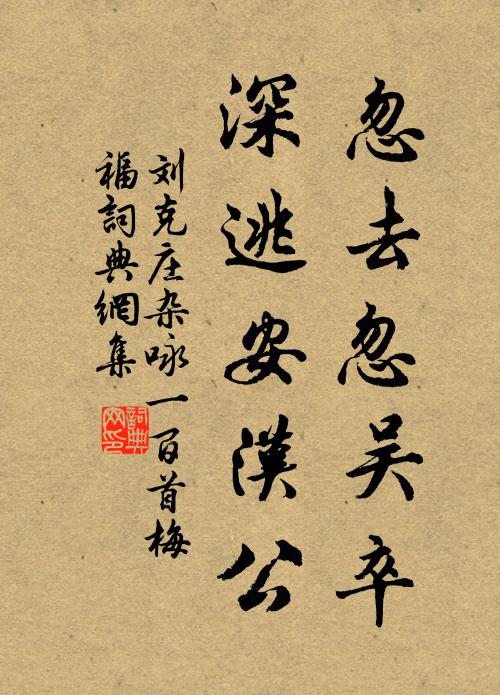 忽去忽吴卒
深逃安漢公
刘克庄杂咏一百首梅
福詞典網集
詞典网印